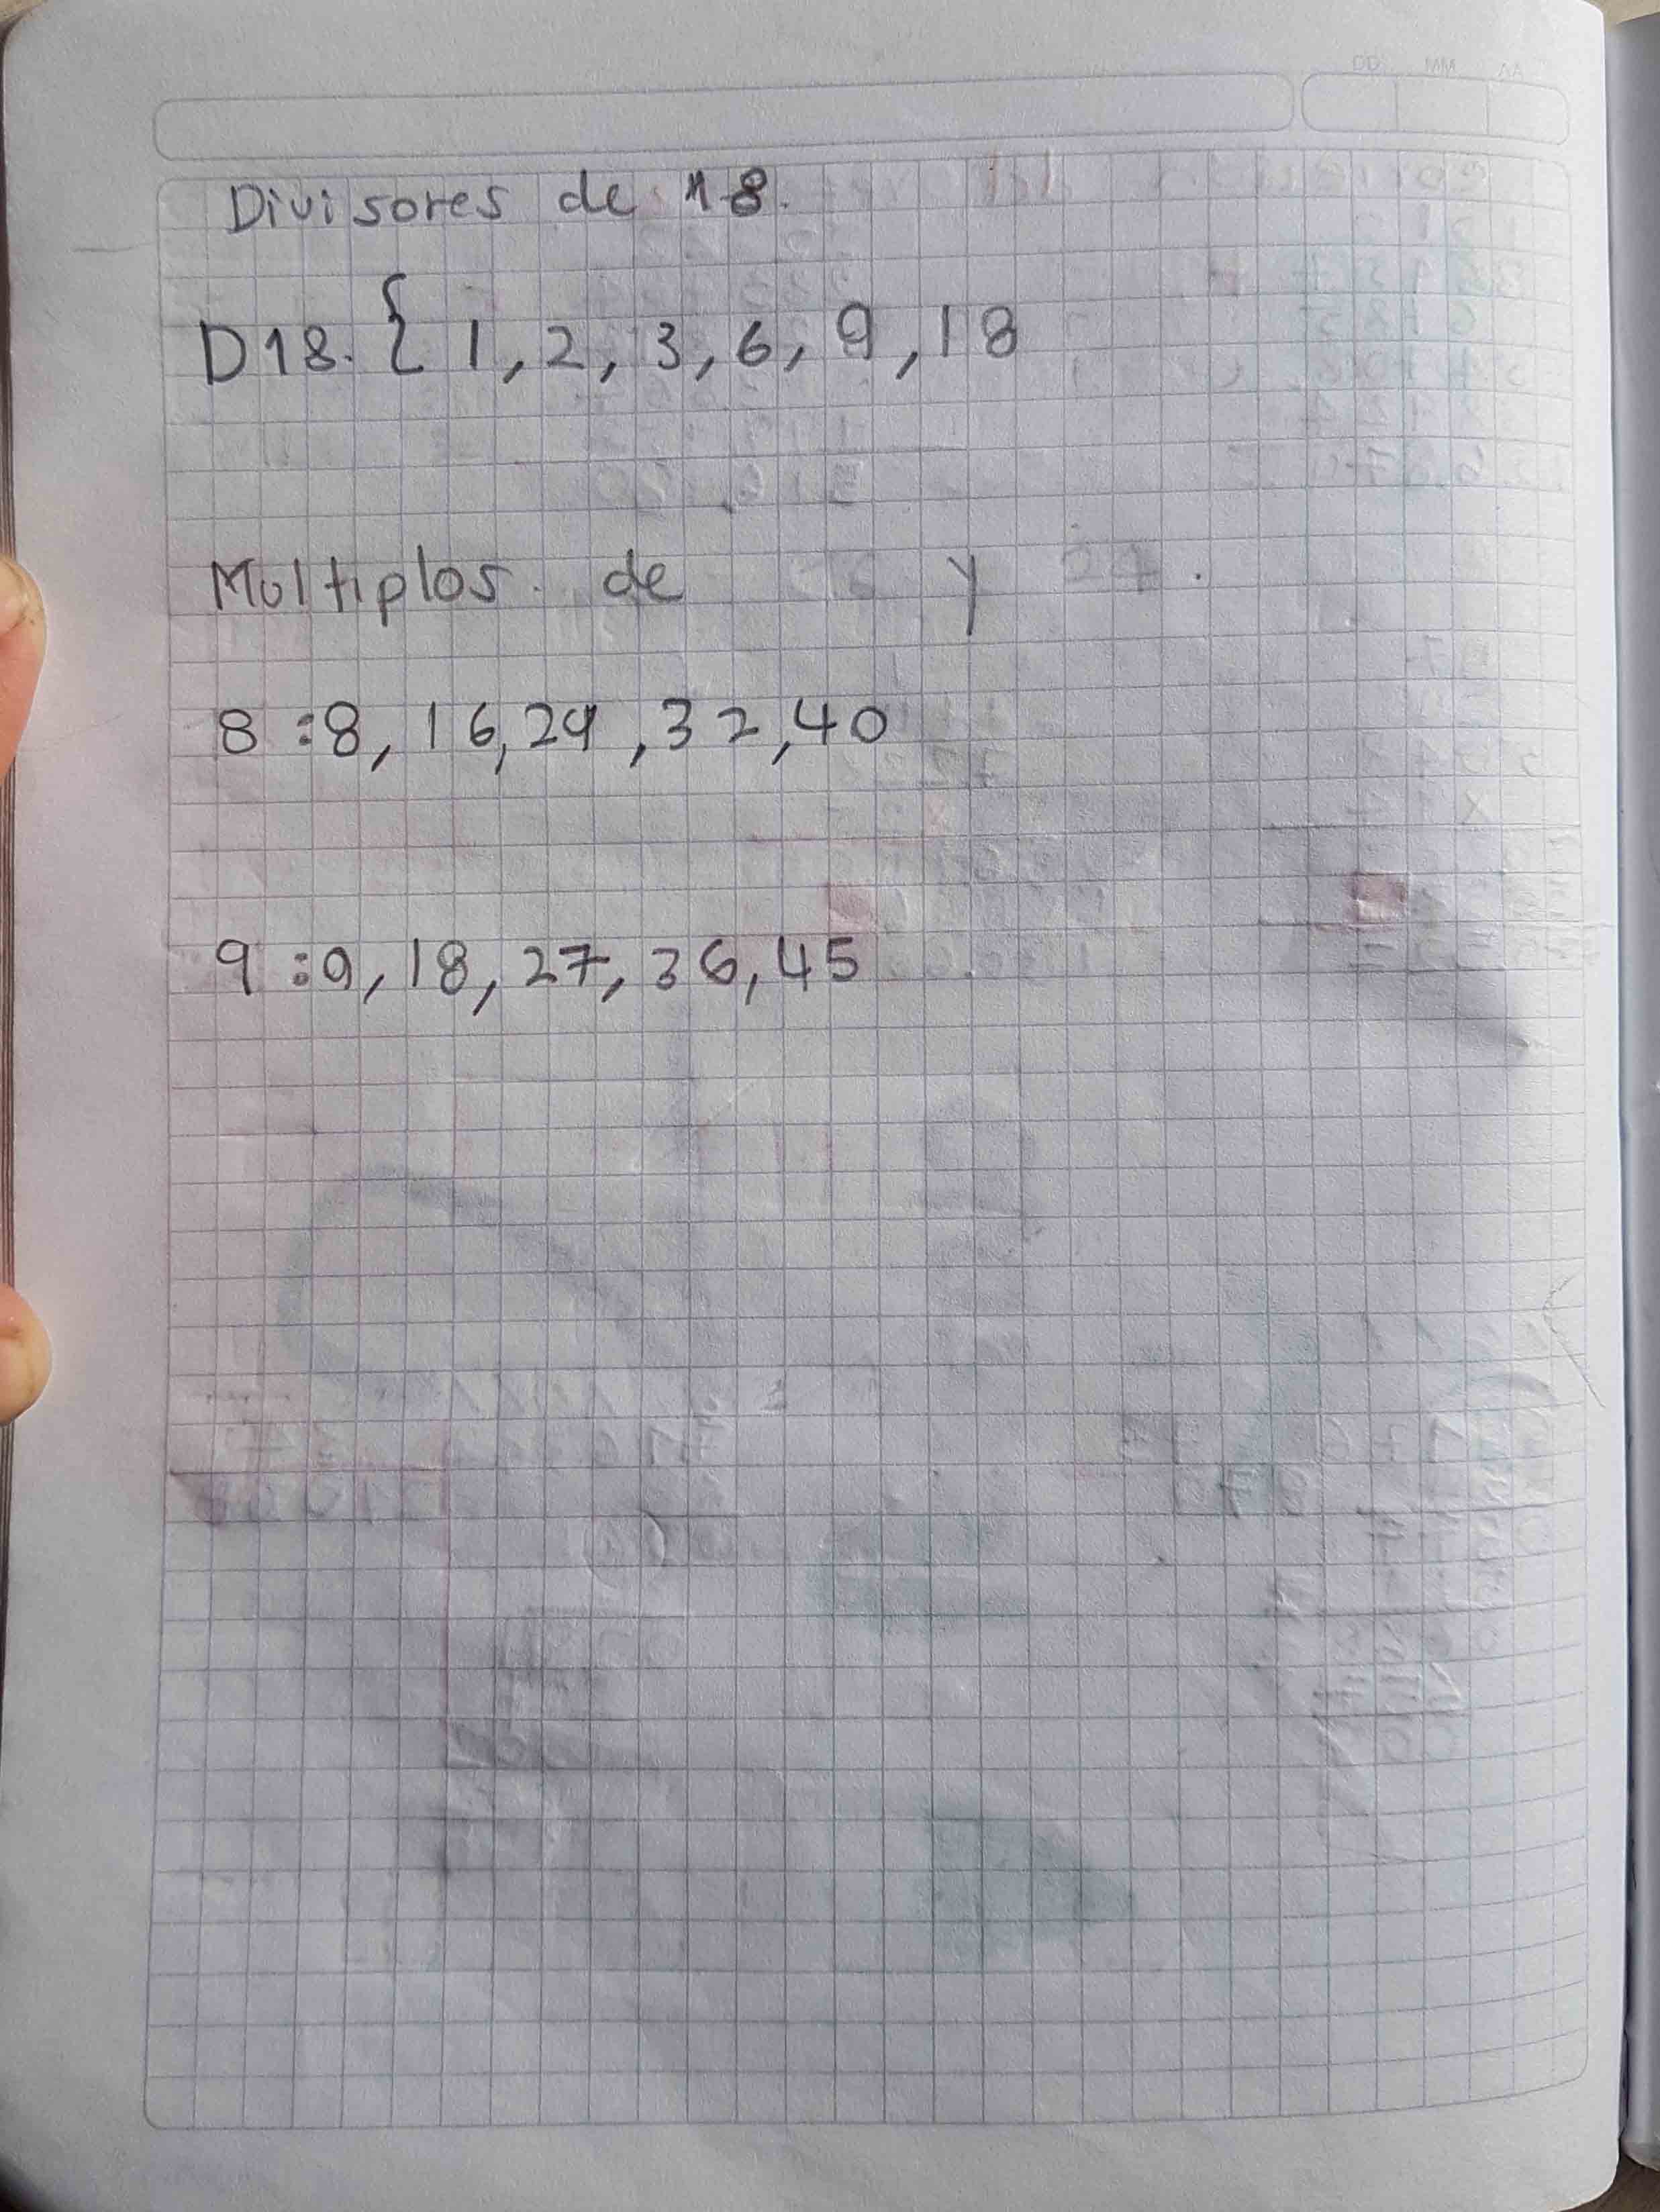 DD MM AA
Divisores de 18.
D18. { 1, 2, 3, 6, 9, 18
Multiplos. de y
8 : 8, 16, 24, 32, 40
9 : 9, 18, 27, 36, 45